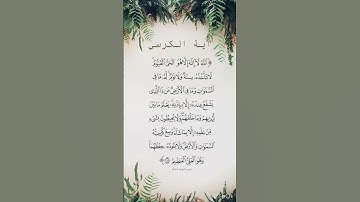 آية الكرسى
﴿ ٱللَّهُ لَآ إِلَٰهَ إِلَّا هُوَ ٱلْحَىُّ ٱلْقَيُّومُ
لَا تَأْخُذُهُۥ سِنَةٌ وَلَا نَوْمٌ لَّهُۥ مَا فِى
ٱلسَّمَٰوَٰتِ وَمَا فِى ٱلْأَرْضِ مَن ذَا ٱلَّذِى
يَشْفَعُ عِندَهُۥٓ إِلَّا بِإِذْنِهِۦ يَعْلَمُ مَا بَيْنَ
أَيْدِيهِمْ وَمَا خَلْفَهُمْ وَلَا يُحِيطُونَ بِشَىْءٍ
مِّنْ عِلْمِهِۦٓ إِلَّا بِمَا شَآءَ وَسِعَ كُرْسِيُّهُ
ٱلسَّمَٰوَٰتِ وَٱلْأَرْضَ وَلَا يَـُٔودُهُۥ حِفْظُهُمَا
وَهُوَ ٱلْعَلِىُّ ٱلْعَظِيمُ ﴾